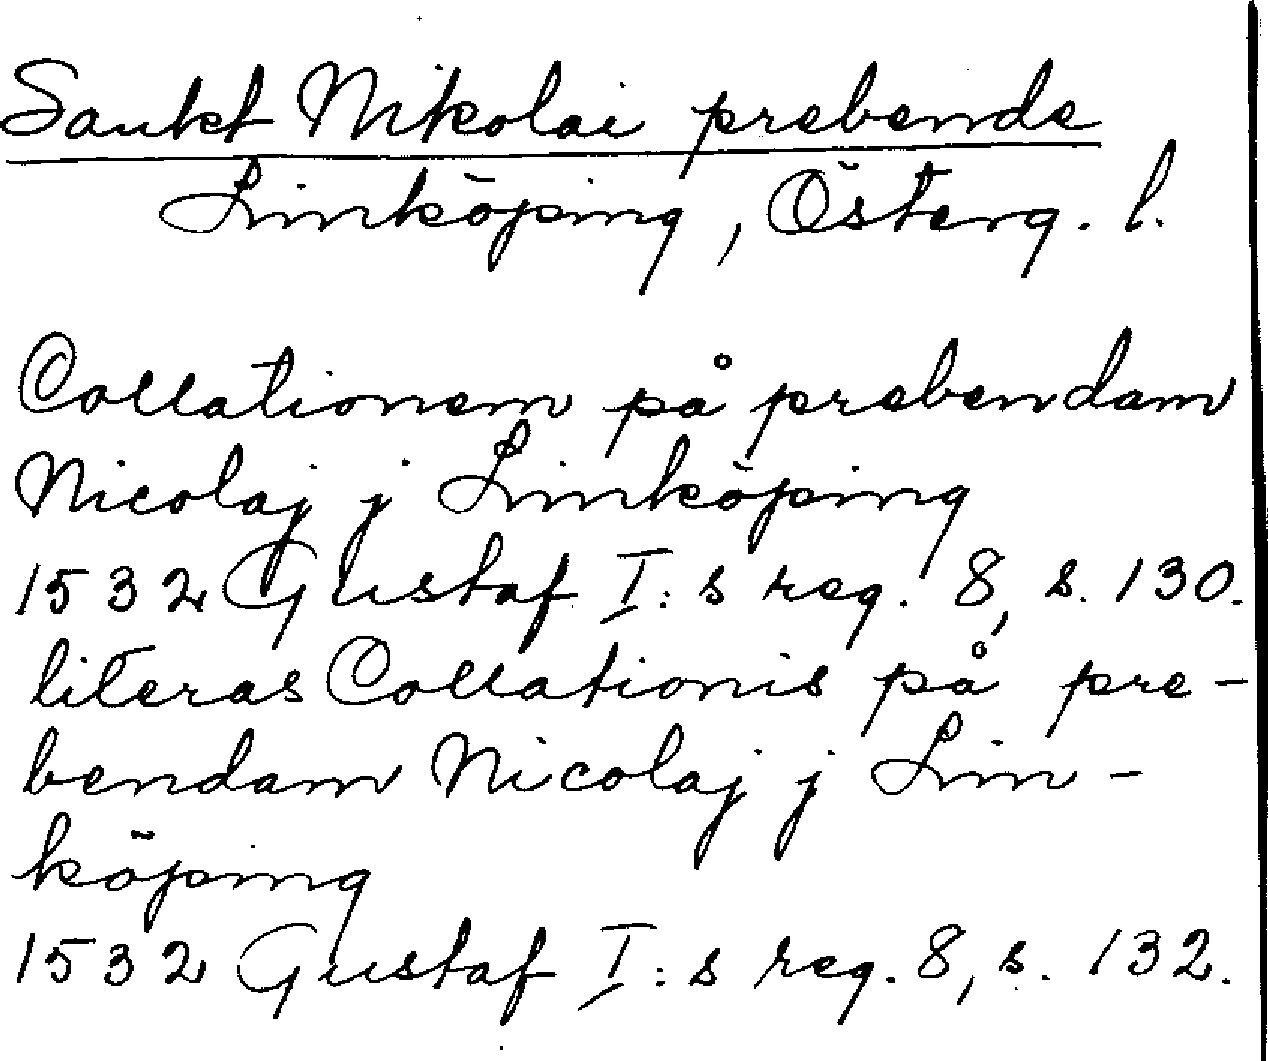 Sankt Nikolai prebende
Linköping, Österg. l.
Collationem på prebendam
Nicolaj j Linköping
1532 Gustaf I:s reg. 8, s. 130.
literas Collationis på pre-
bendam Nicolaj j Lin-
köping
1532 Gustaf I:s reg. 8, s. 132.